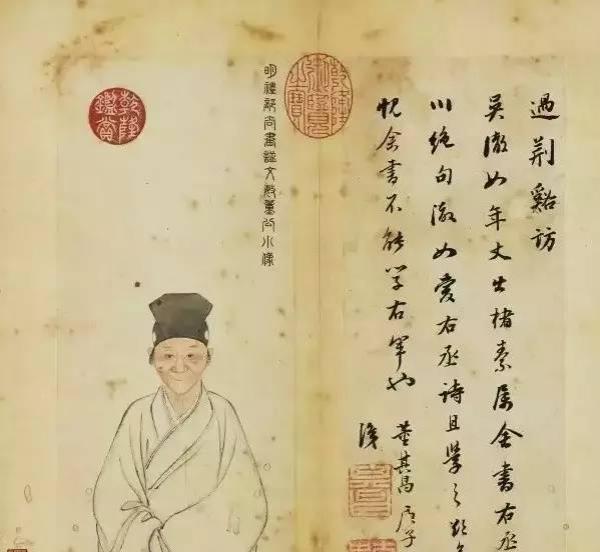 過荊谿訪
吳澈如年丈出楮素屬余書右丞
川絕句澈如愛右丞詩且學之
愧余書不能學右軍也 董其昌
識
乾隆御覽之寶
明禮部尚書諡文敏董公小像
乾隆鑑賞